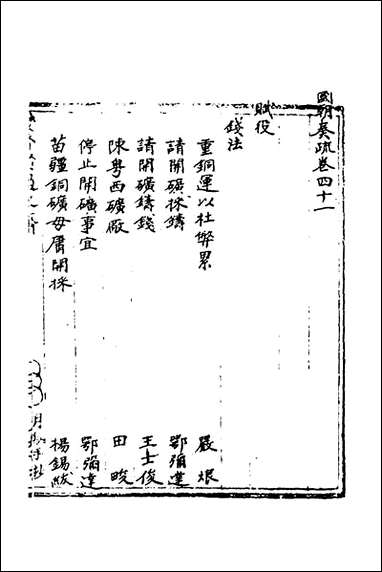 國朝奏疏卷四十一
賦役
錢法
重銅運以杜弊累 嚴烺
請開礦採鑄 鄂彌達
請開礦鑄錢 王士俊
陳粵西礦廠 田畯
停止開礦事宜 鄂彌達
苗疆銅礦毋庸開採 楊錫紱